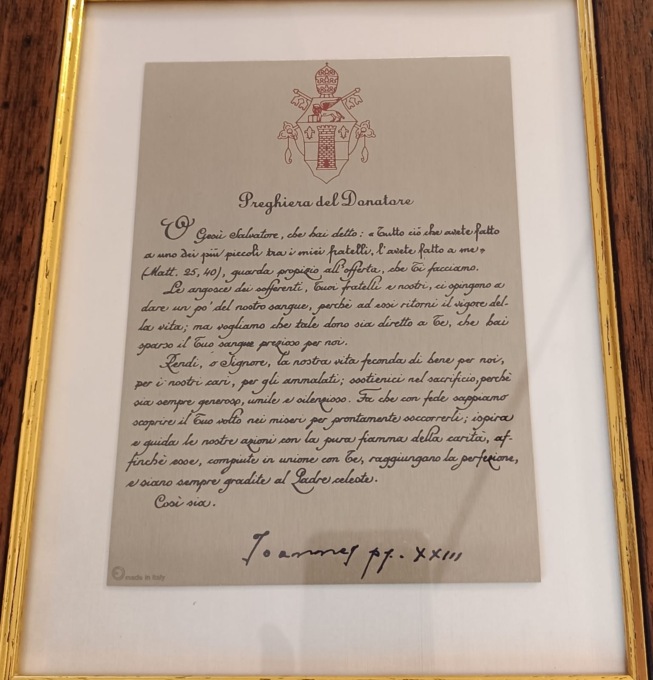 Preghiera del Donatore
O Gesù Salvatore, che hai detto: «Tutto ciò che avete fatto
a uno dei più piccoli tra i miei fratelli, l'avete fatto a me»
(Matt. 25, 40), guarda propizio all'offerta, che Ti facciamo.
Le angosce dei sofferenti, Tuoi fratelli e nostri, ci spingono a
dare un po' del nostro sangue, perchè ad essi ritorni il vigore del-
la vita; ma vogliamo che tale dono sia diretto a Te, che hai
sparso il Tuo sangue prezioso per noi.
Rendi, o Signore, la nostra vita feconda di bene per noi,
per i nostri cari, per gli ammalati; sostienici nel sacrificio, perchè
sia sempre generoso, umile e silenzioso. Fa che con fede sappiamo
scoprire il Tuo volto nei miseri per prontamente soccorrerli; ispira
e guida le nostre azioni con la pura fiamma della carità, af-
finchè esse, compiute in unione con Te, raggiungano la perfezione,
e siano sempre gradite al Padre celeste.
Così sia.
Joannes pp. XXIII
made in Italy